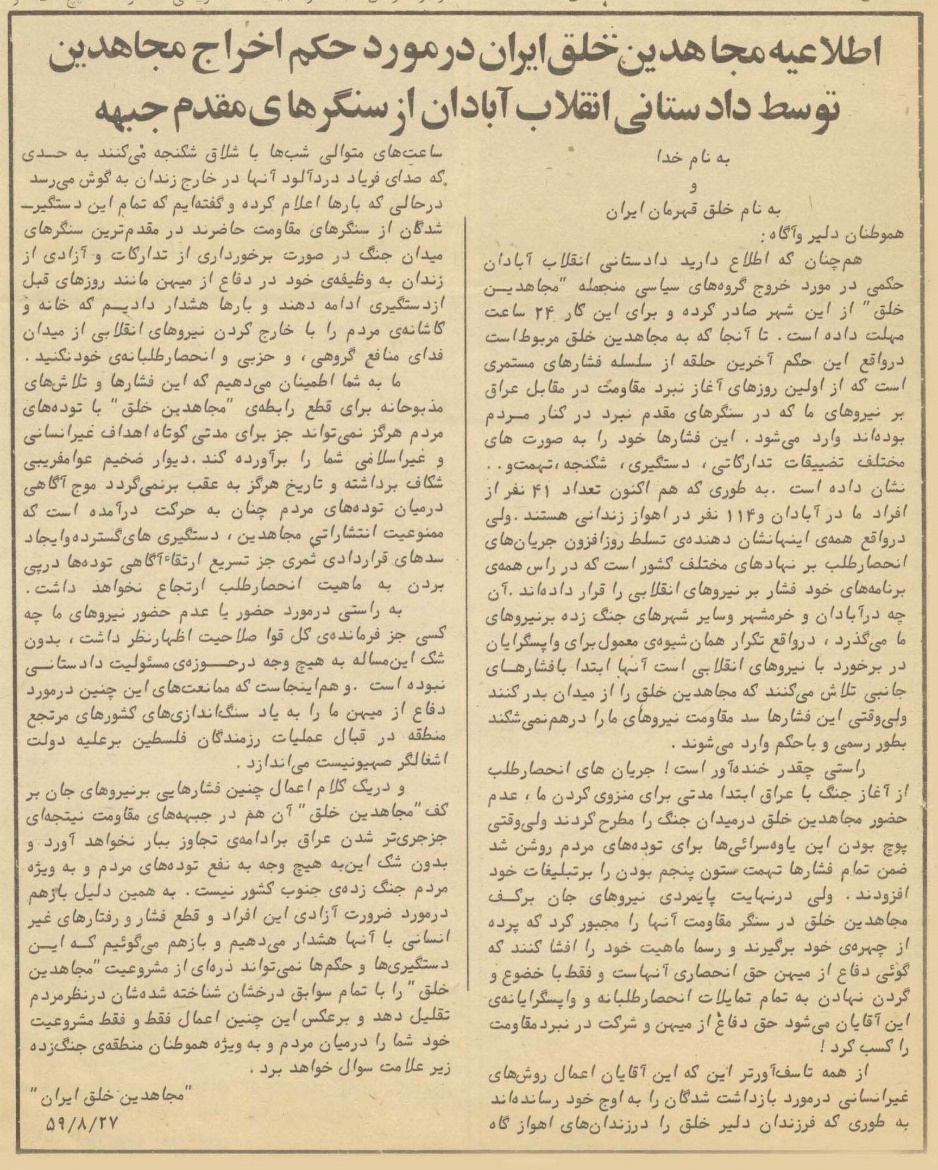 اطلاعیه مجاهدین خلق ایران درمورد حکم اخراج مجاهدین
توسط دادستانی انقلاب آبادان از سنگرهای مقدم جبهه
به نام خدا
و
به نام خلق قهرمان ایران
هموطنان دلیر وآگاه :
هم‌چنان که اطلاع دارید دادستانی انقلاب آبادان
حکمی در مورد خروج گروه‌های سیاسی منجمله "مجاهدین
خلق" از این شهر صادر کرده و برای این کار ۲۴ ساعت
مهلت داده است . تا آنجا که به مجاهدین خلق مربوط‌است
درواقع این حکم آخرین حلقه از سلسله فشارهای مستمری
است که از اولین روزهای آغاز نبرد مقاومت در مقابل عراق
بر نیروهای ما که در سنگرهای مقدم نبرد در کنار مردم
بوده‌اند وارد می‌شود . این فشارها خود را به صورت های
مختلف تضییقات تدارکاتی ، دستگیری ، شکنجه ،تهمت‌و . .
نشان داده است .به طوری که هم اکنون تعداد ۴۱ نفر از
افراد ما در آبادان و۱۱۴ نفر در اهواز زندانی هستند .ولی
درواقع همه‌ی اینهانشان دهنده‌ی تسلط روزافزون جریان‌های
انحصارطلب بر نهادهای مختلف کشور است که در راس همه‌ی
برنامه‌های خود فشار بر نیروهای انقلابی را قرار داده‌اند .آن
چه درآبادان و خرمشهر وسایر شهرهای جنگ زده برنیروهای
ما می‌گذرد ، درواقع تکرار همان شیوه‌ی معمول برای واپسگرایان
در برخورد با نیروهای انقلابی است آنها ابتدا بافشارهای
جانبی تلاش می‌کنند که مجاهدین خلق را از میدان بدر کنند
ولی‌وقتی این فشارها سد مقاومت نیروهای ما را درهم‌نمی‌شکند
بطور رسمی و باحکم وارد می‌شوند .
راستی چقدر خنده‌آور است ! جریان های انحصارطلب
از آغاز جنگ با عراق ابتدا مدتی برای منزوی کردن ما ، عدم
حضور مجاهدین خلق درمیدان جنگ را مطرح کردند ولی‌وقتی
پوچ بودن این یاوه‌سرائی‌ها برای توده‌های مردم روشن شد
ضمن تمام فشارها تهمت ستون پنجم بودن را برتبلیغات خود
افزودند . ولی درنهایت پایمردی نیروهای جان برکف
مجاهدین خلق در سنگر مقاومت آنها را مجبور کرد که پرده
از چهره‌ی خود برگیرند و رسما ماهیت خود را افشا کنند که
گوئی دفاع از میهن حق انحصاری آنهاست و فقط با خضوع و
گردن نهادن به تمام تمایلات انحصارطلبانه و واپسگرایانه‌ی
این آقایان می‌شود حق دفاع از میهن و شرکت در نبردمقاومت
را کسب کرد !
از همه تاسف‌آورتر این که این آقایان اعمال روش‌های
غیرانسانی درمورد بازداشت شدگان را به اوج خود رسانده‌اند
به طوری که فرزندان دلیر خلق را درزندان‌های اهواز گاه
ساعت‌های متوالی شب‌ها با شلاق شکنجه می‌کنند به حدی
که صدای فریاد دردآلود آنها در خارج زندان به گوش می‌رسد
درحالی که بارها اعلام کرده و گفته‌ایم که تمام این دستگیر-
شدگان از سنگرهای مقاومت حاضرند در مقدم‌ترین سنگرهای
میدان جنگ در صورت برخورداری از تدارکات و آزادی از
زندان به وظیفه‌ی خود در دفاع از میهن مانند روزهای قبل
ازدستگیری ادامه دهند و بارها هشدار دادیم که خانه و
کاشانه‌ی مردم را با خارج کردن نیروهای انقلابی از میدان
فدای منافع گروهی ، و حزبی و انحصارطلبانه‌ی خودنکنید .
ما به شما اطمینان می‌دهیم که این فشارها و تلاش‌های
مذبوحانه برای قطع رابطه‌ی "مجاهدین خلق" با توده‌های
مردم هرگز نمی‌تواند جز برای مدتی کوتاه اهداف غیرانسانی
و غیراسلامی شما را برآورده کند .دیوار ضخیم عوامفریبی
شکاف برداشته و تاریخ هرگز به عقب برنمی‌گردد موج آگاهی
درمیان توده‌های مردم چنان به حرکت درآمده است که
ممنوعیت انتشاراتی مجاهدین ، دستگیری های‌گسترده‌وایجاد
سدهای قراردادی ثمری جز تسریع ارتقاء‌آگاهی توده‌ها درپی
بردن به ماهیت انحصارطلب ارتجاع نخواهد داشت .
به راستی درمورد حضور یا عدم حضور نیروهای ما چه
کسی جز فرمانده‌ی کل قوا صلاحیت اظهارنظر داشت ، بدون
شک این‌مساله به هیچ وجه درحوزه‌ی مسئولیت دادستانی
نبوده است .و هم‌اینجاست که ممانعت‌های این چنین درمورد
دفاع از میهن ما را به یاد سنگ‌اندازی‌های کشورهای مرتجع
منطقه در قبال عملیات رزمندگان فلسطین برعلیه دولت
اشغالگر صهیونیست می‌اندازد .
و دریک کلام اعمال چنین فشارهایی برنیروهای جان بر
کف "مجاهدین خلق" آن هم در جبهه‌های مقاومت نیتجه‌ای
جزجری‌تر شدن عراق برادامه‌ی تجاوز ببار نخواهد آورد و
بدون شک این‌به هیچ وجه به نفع توده‌های مردم و به ویژه
مردم جنگ زده‌ی جنوب کشور نیست . به همین دلیل بازهم
درمورد ضرورت آزادی این افراد و قطع فشار و رفتارهای غیر
انسانی با آنها هشدار می‌دهیم و بازهم می‌گوئیم که این
دستگیری‌ها و حکم‌ها نمی‌تواند ذره‌ای از مشروعیت "مجاهدین
خلق" را با تمام سوابق درخشان شناخته شده‌شان درنظرمردم
تقلیل دهد و برعکس این چنین اعمال فقط و فقط مشروعیت
خود شما را درمیان مردم و به ویژه هموطنان منطقه‌ی جنگ‌زده
زیر علامت سوال خواهد برد .
"مجاهدین خلق ایران"
۵۹/۸/۲۷